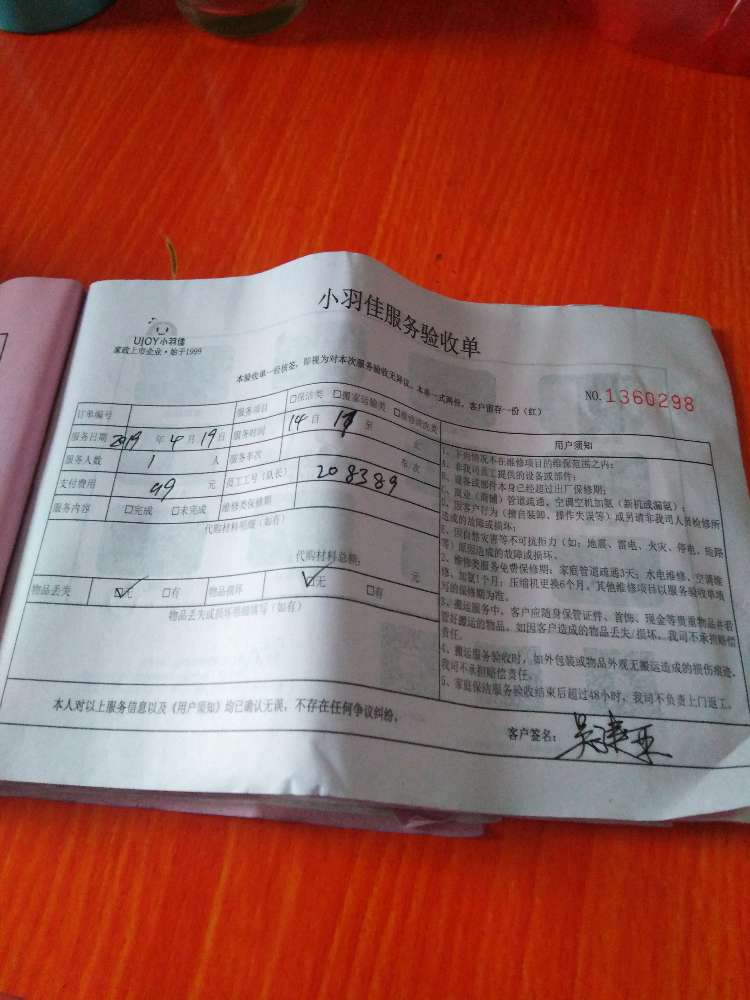 小羽佳服务验收单
UJOY小羽佳
家政上市企业·始于1999
本验收单一经核签,即视为对本次服务验收无异议。本单一式两份,客户留存一份(红)
NO.1360298
订单编号 服务项目 □保洁类 □搬家运输类 □维修清洗类
服务日期 2019 年 4 月 19 日 服务时间 14 自 至
服务人数 1 人 服务车次 车/次
支付费用 99 元 员工工号(队长) 208389
服务内容 □完成 □未完成 维修类保修期
代购材料明细(如有)
代购材料总额: 元
物品丢失 ☑无 □有 物品损坏 ☑无 □有
物品丢失或损坏明细填写(如有)
用户须知
1、下列情况不在维修项目的维保范围之内:
A、非我司员工提供的设备或部件;
B、设备或部件本身已经超过出厂保修期;
C、商业(商铺)管道疏通、空调空机加氨(新机或漏氨);
D、因客户行为(擅自装卸、操作失误等)或另请非我司人员检修所
造成的故障或损坏;
E、因自然灾害等不可抗拒力(如:地震、雷电、火灾、停电、短路
等)原因造成的故障或损坏。
2、维修类服务免费保修期:家庭管道疏通3天;水电维修、空调维
修、加氨1个月;压缩机更换6个月。其他维修项目以服务验收单填
写的保修期为准。
3、搬运服务中,客户应随身保管证件、首饰、现金等贵重物品并看
管好搬运的物品。如因客户造成的物品丢失/损坏,我司不承担赔偿
责任。
4、搬运服务验收时,如外包装或物品外观无搬运造成的损伤痕迹,
我司不承担赔偿责任。
5、家庭保洁服务验收结束后超过48小时,我司不负责上门返工。
本人对以上服务信息以及《用户须知》均已确认无误,不存在任何争议纠纷。
客户签名: